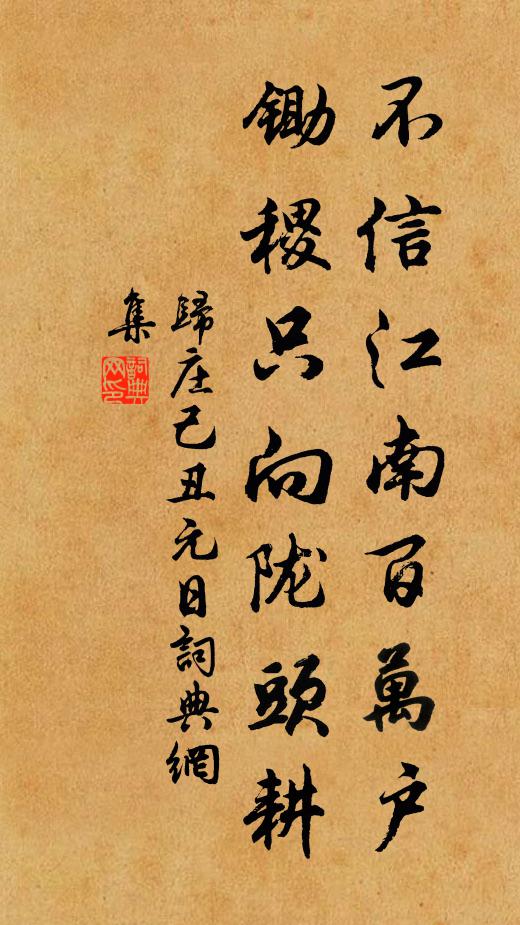 不信江南百萬户
鋤稷只向陇頭耕
歸庄己丑元日詞典網
集
詞典
网印